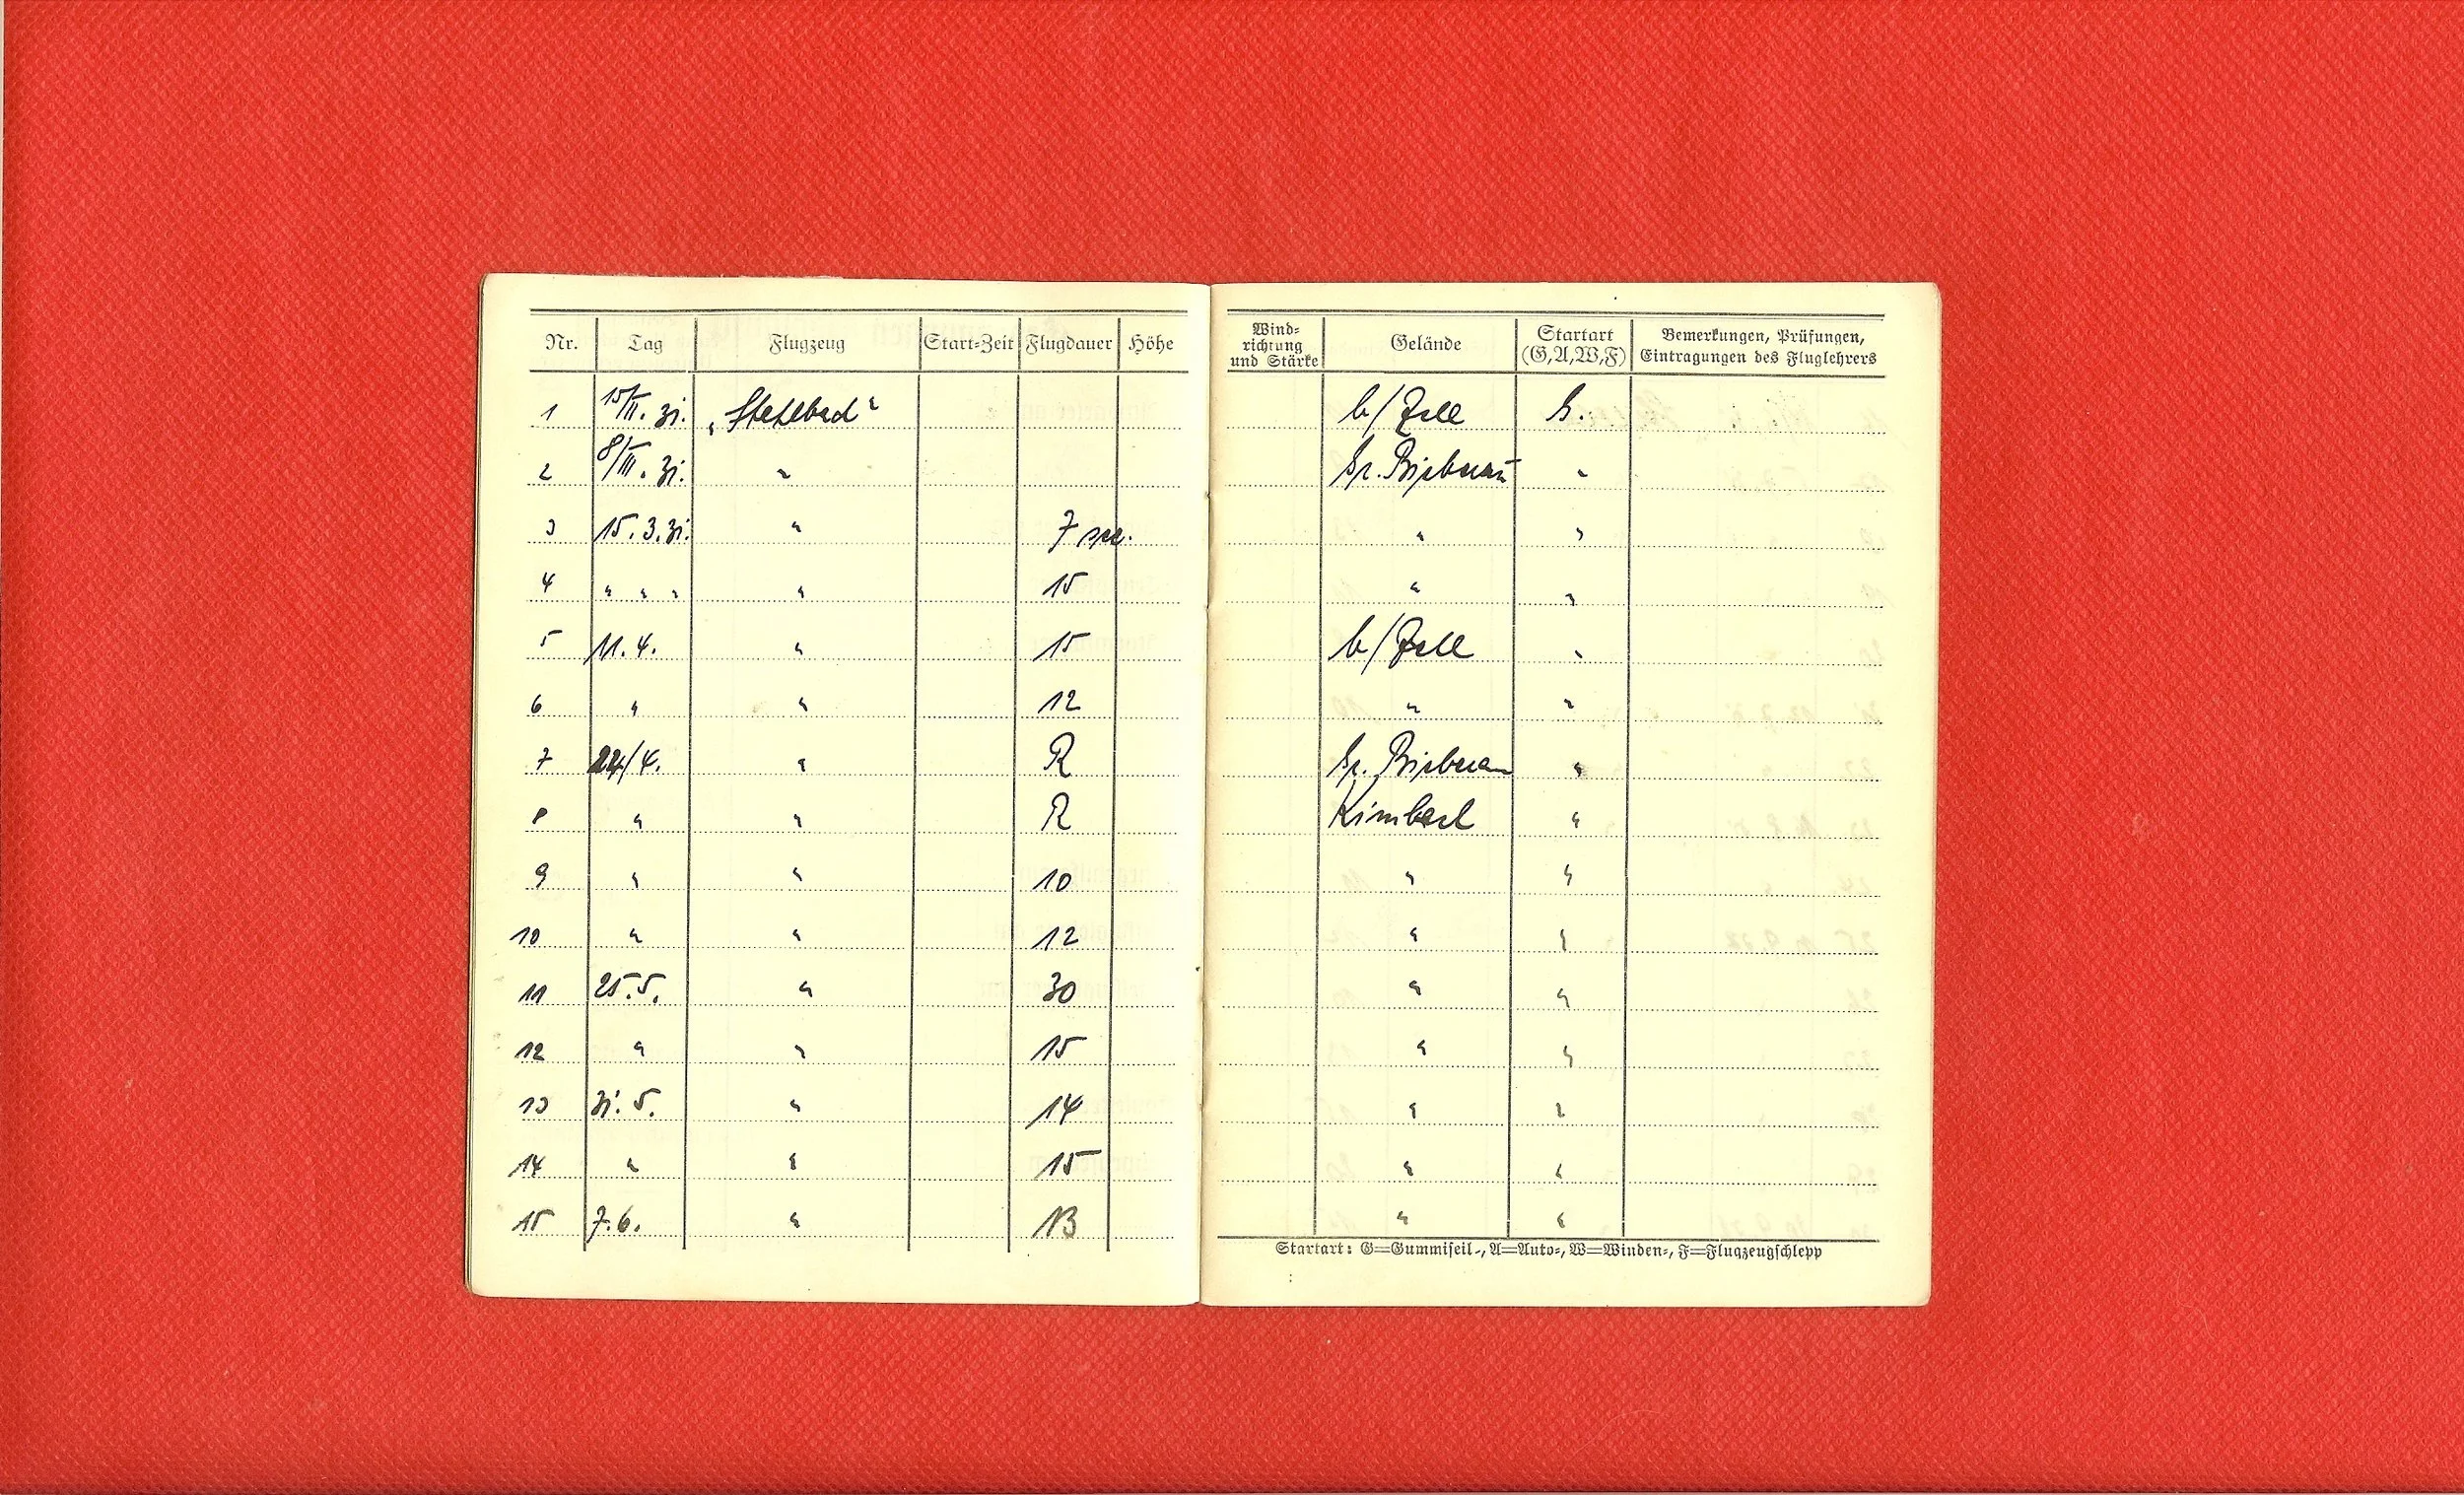 Nr. Tag Flugzeug Start-Zeit Flugdauer Höhe Wind-richtung und Stärke Gelände Startart (G,A,W,F) Bemerkungen, Prüfungen, Eintragungen des Fluglehrers
1 15/II. 31. „Stahlbad“ b/Zell G.
2 8/III. 31. " Gr. "
3 15.3.31. " 7 sec. " "
4 " " " " 15 " "
5 11.4. " 15 b/Zell "
6 " " 12 " "
7 /4. " R Gr. "
8 " " R "
9 " " 10 " "
10 " " 12 " "
11 25.5. " 30 " "
12 " " 15 " "
13 31.5. " 14 " "
14 " " 15 " "
15 7.6. " 13 " "
Startart: G=Gummiseil-, A=Auto-, W=Winden-, F=Flugzeugschlepp